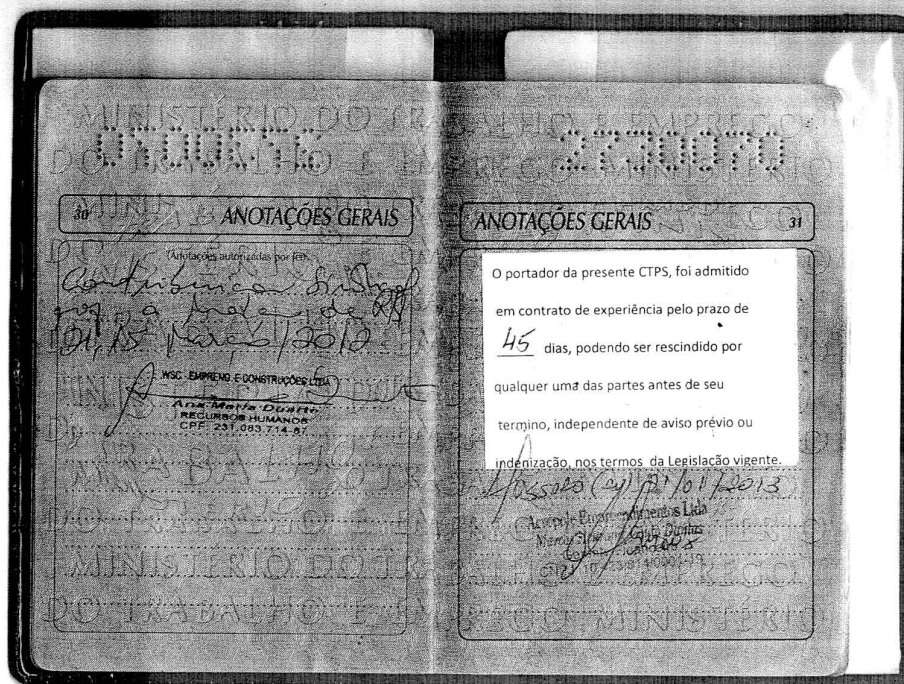 30 ANOTAÇÕES GERAIS
(Anotações autorizadas por lei)
Contribuição Sindical
de R$
21,15 Março/2012
WSC EMPREEND E CONSTRUÇÕES LTDA
Ana Maria Duarte
RECURSOS HUMANOS
CPF 231.083.714-87
ANOTAÇÕES GERAIS 31
O portador da presente CTPS, foi admitido
em contrato de experiência pelo prazo de
45 dias, podendo ser rescindido por
qualquer uma das partes antes de seu
termino, independente de aviso prévio ou
indenização, nos termos da Legislação vigente.
Mossoró 21/01/2013
Acropole Empreendimentos Ltda
MINISTÉRIO DO TRABALHO E EMPREGO